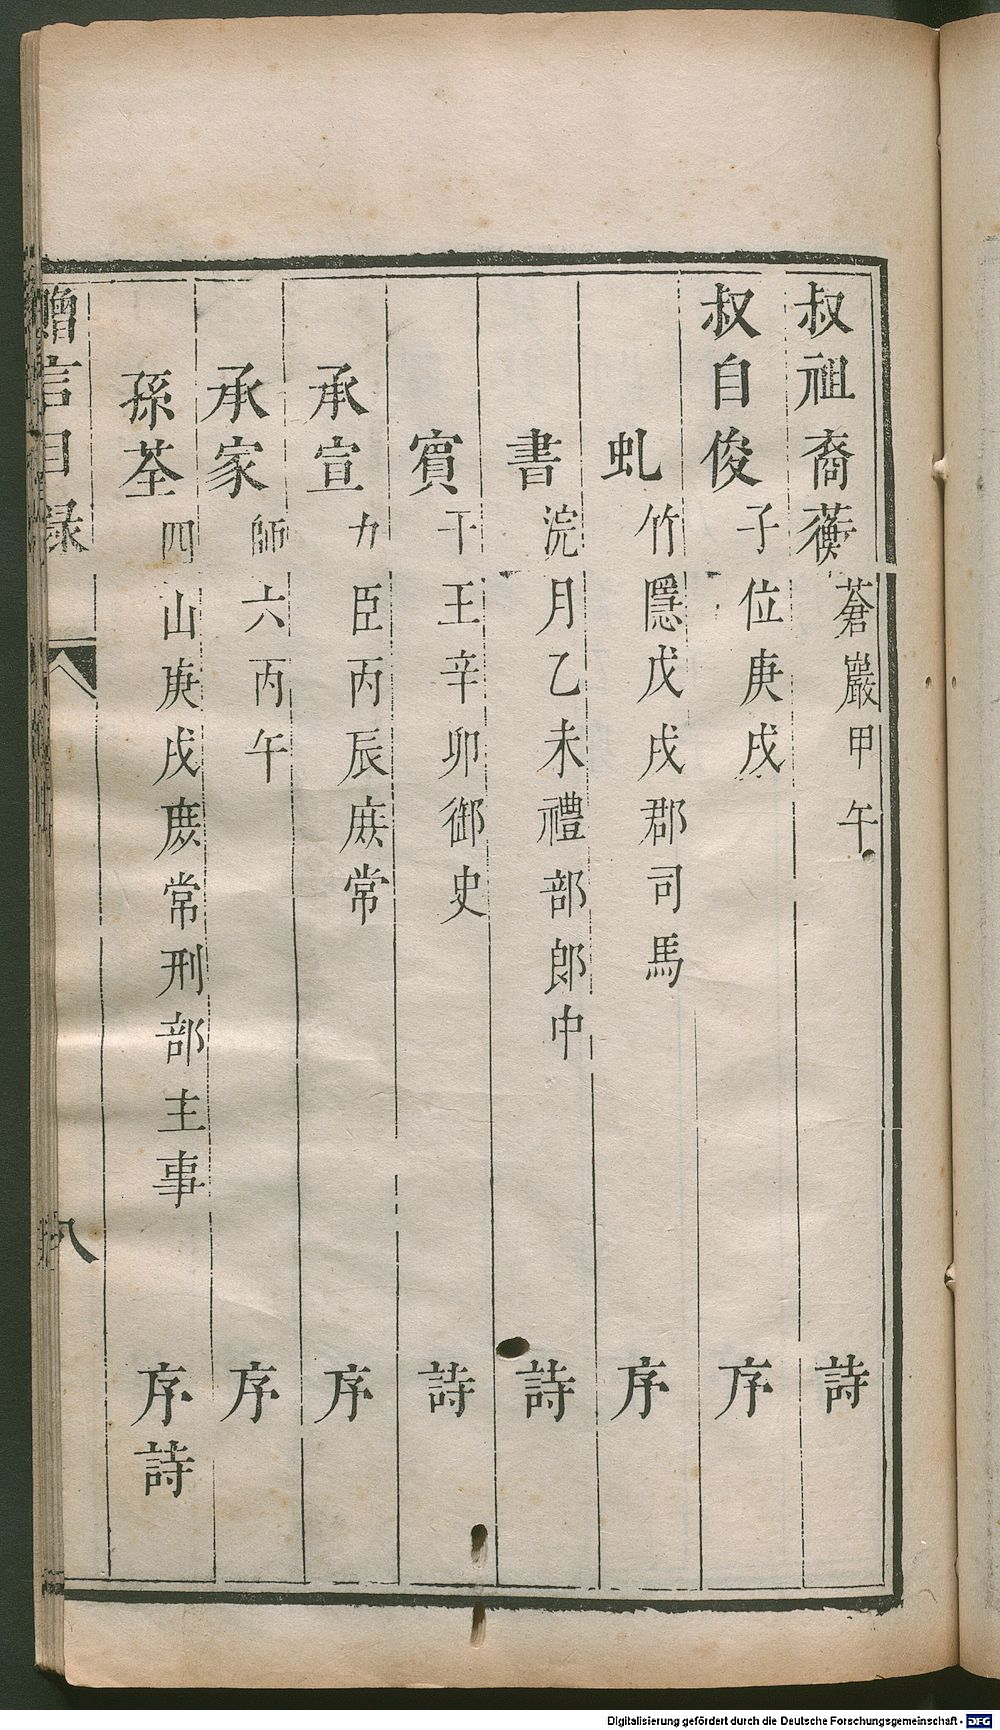 叔祖裔蘅蒼巖甲午詩
叔自俊子位庚戌序
虬竹隱戊戌郡司馬序
書浣月乙未禮部郎中詩
賓干王辛卯御史詩
承宣力臣丙辰庶常序
承家師六丙午序
孫荃四山庚戌庶常刑部主事序詩
贈言目録
八
Digitalisierung gefördert durch die Deutsche Forschungsgemeinschaft - DFG